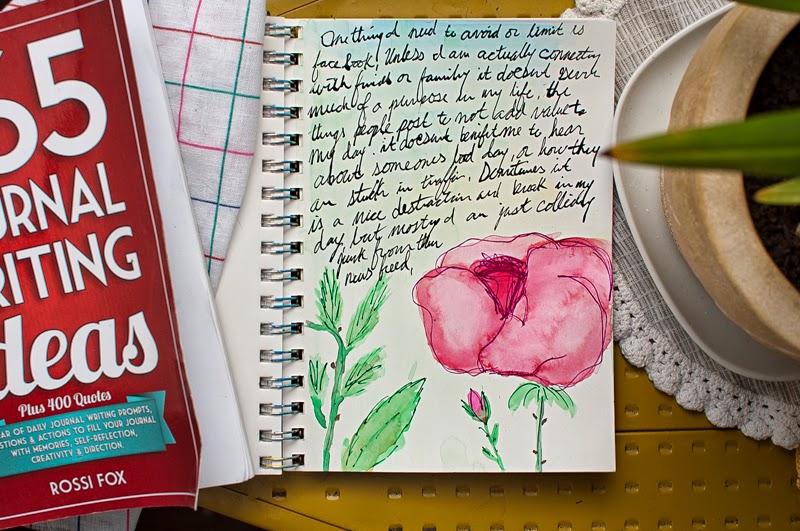 65
URNAL
RITING
deas
Plus 400 Quotes
AR OF DAILY JOURNAL WRITING PROMPTS,
STIONS & ACTIONS TO FILL YOUR JOURNAL
WITH MEMORIES, SELF-REFLECTION,
CREATIVITY & DIRECTION.
ROSSI FOX
One thing I need to avoid or limit is
facebook! Unless I am actually connecting
with friends or family it doesnt serve
much of a purpose in my life, the
things people post to not add value to
my day. it doesnt benefit me to hear
about someones bad day, or how they
are stuck in traffic. Sometimes it
is a nice distraction and break in my
day, but mostly I am just
junk from their
news feed.